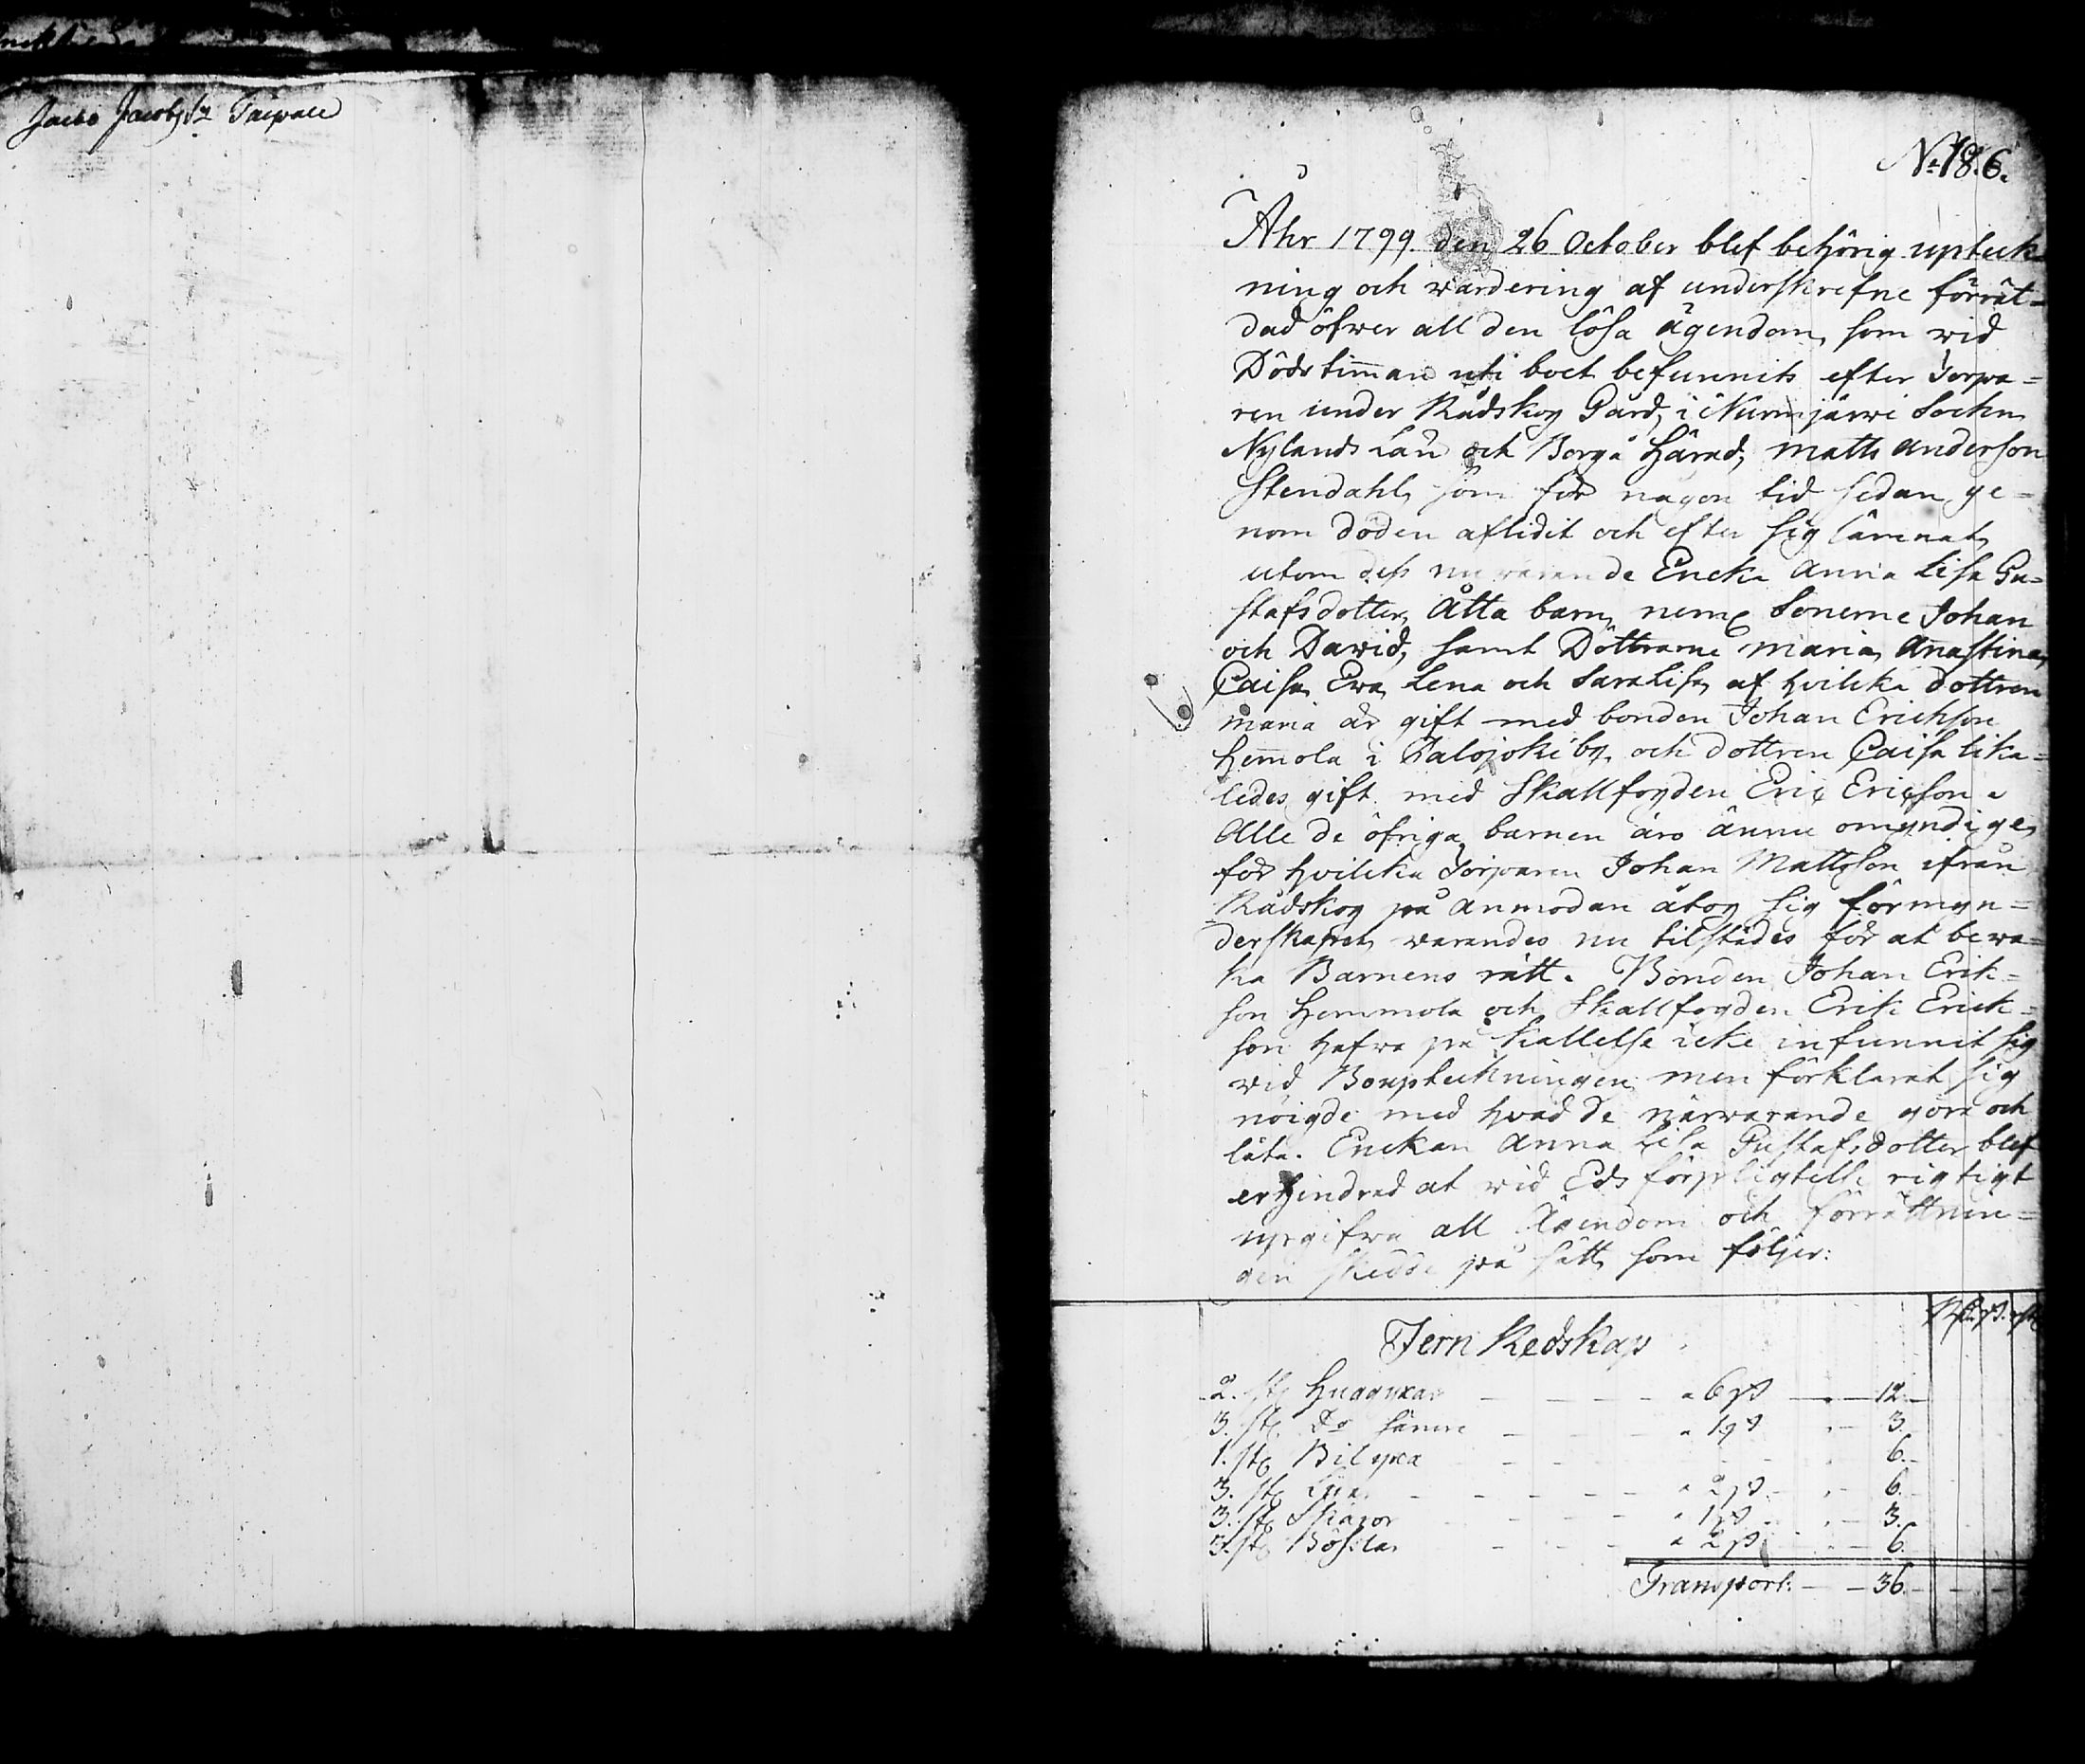 Jacob Jacobss: Taipale
No 18.6.
Åhr 1799. den 26 October blef behörig upteck-
ning och wärdering af underskrefne förrät-
dad öfwer all den lösa ägendom, som wid
Dödstiman uti boet befunnits efter Torpa-
ren under Rådskog Gård, i Nurmijärwi Sochn
Nylands Län och Borgå Härad, Matts Anderson
Stendahl, som för någon tid sedan ge-
nom döden aflidit och efter sig lämnat,
utom dess nu warande Encka Anna Lisa Gu-
stafsdotter, Åtta barn, neml Sönerne Johan
och Dawid, samt Döttrarne Maria, Anastina,
Caisa, Ewa, Lena och Saralisa, af hvilcka dottren
Maria är gift med bonden Johan Erichson
Hemola i Palojoki by, och dottren Caisa lika-
ledes gift med Skallfogden Eric Ericson.
Alle de öfriga barnen äro ännu omyndige,
för hvilcka Torparen Johan Mattsson ifrån
Rådskog på anmodan åtog sig förmyn-
derskapet, warandes nu tilstädes för at bewa-
ka Barnens rätt. Bonden Johan Erik-
son Hemmola och Skallfogden Erik Erick-
son hafwa på kallelse icke infunnit sig
wid Bouptekningen, men förklarat sig
nöigde med hvad de närwarande göra och
låta. Enckan Anna Lisa Gustafsdotter blef
erhindrad at wid Eds förpligtelse rigtigt
upgifwa all Ägendom och förrättnin-
gen skedde på sätt, som följer:
Jern Redskap
2. st. Huggyxar - - - - a 6 ß - - 12.
3. st. Do sämre - - - a 1 ß - 3.
1. st. Bilyxa - - - 6.
3. st. - - - - - a 2 ß - - 6.
3. st. Skäror - - - a 1 ß - - 3.
3. st. - - - a 2 ß - - 6.
Transport: - - 36.